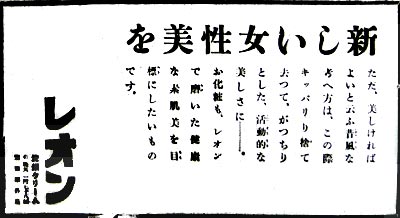 新しい女性美を
ただ、美しければ
よいと云ふ昔風な
考へ方は、この際
キッパリ捨て
去つて、がつちり
とした、活動的な
美しさに――。
お化粧も、レオン
で磨いた健康
な素肌美を目
標にしたいもの
です。
レオン
洗顔クリーム